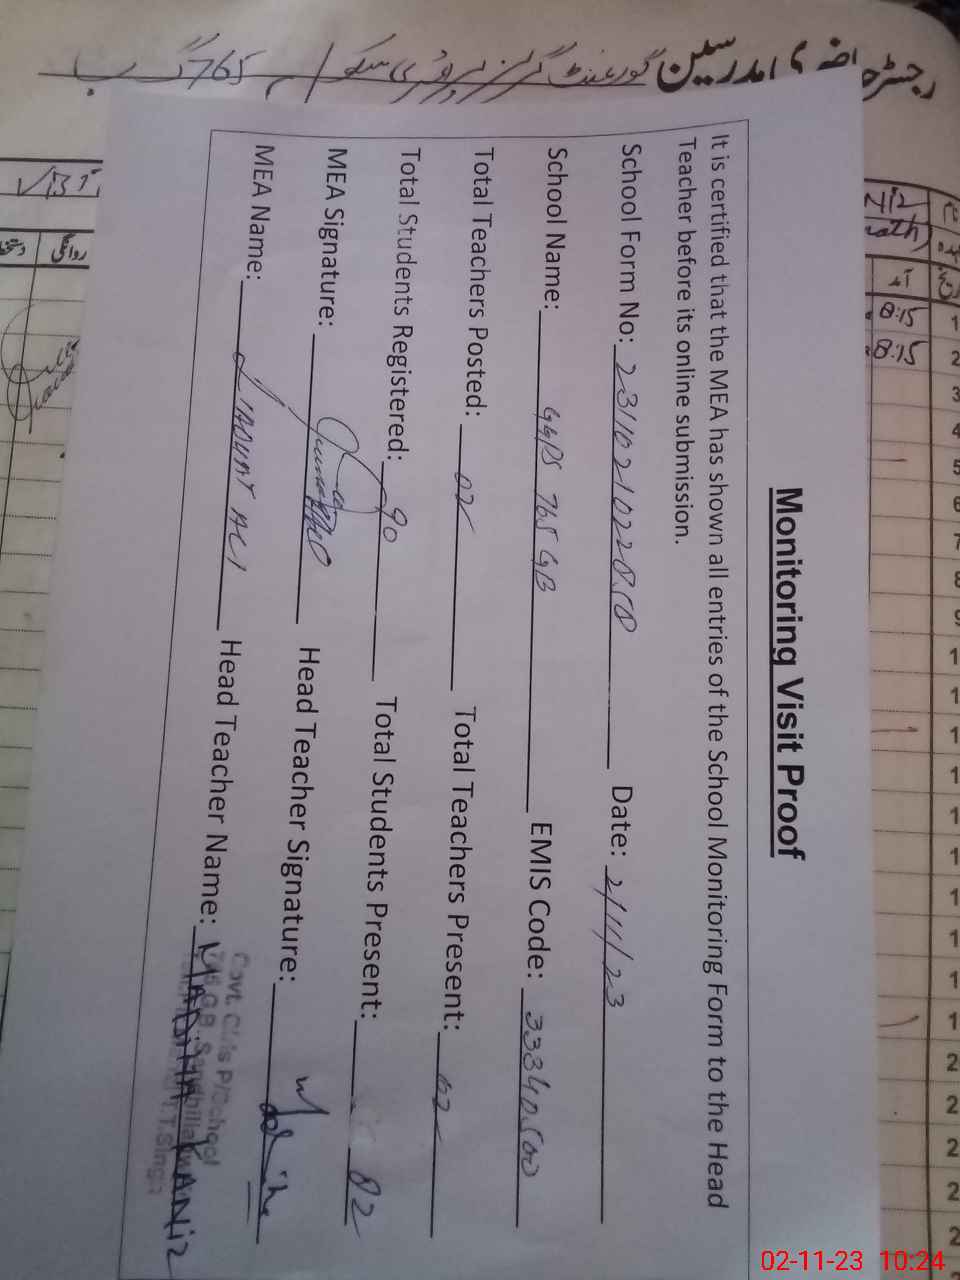 رجسٹر حاضری مدرسین گورنمنٹ گرلز پرائمری سکول 765 گ ب
Monitoring Visit Proof
It is certified that the MEA has shown all entries of the School Monitoring Form to the Head
Teacher before its online submission.
School Form No: Date: 2/11/23
School Name: GGPS 765 GB EMIS Code: 33340500
Total Teachers Posted: 02 Total Teachers Present: 02
Total Students Registered: 90 Total Students Present: 82
MEA Signature: Head Teacher Signature: Madiha
MEA Name: LIAQUAT ALI Head Teacher Name: MADIHA KANIZ
Govt. Girls P/School
765 G.B.
T.T.Singh
8:15
8:15
روانگی
02-11-23 10:24